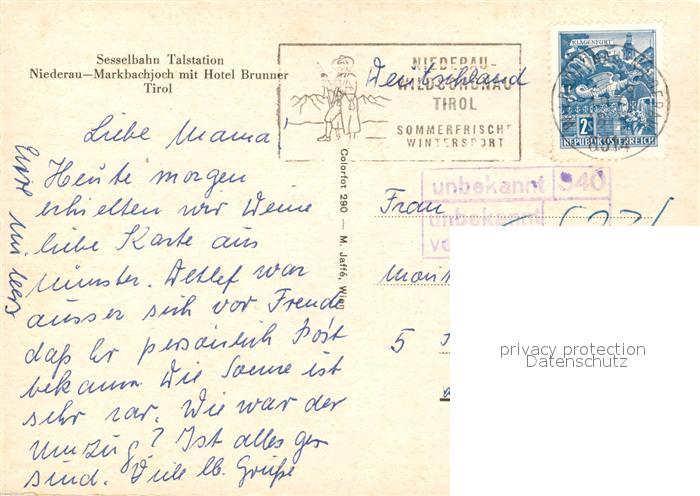 Sesselbahn Talstation
Niederau—Markbachjoch mit Hotel Brunner
Tirol
NIEDERAU-
WILDSCHÖNAU
TIROL
SOMMERFRISCHE
WINTERSPORT
Deutschland
KLAGENFURT
2S
REPUBLIK ÖSTERREICH
unbekannt 340
unbekannt
Colorfot 290 — M. Jaffé, Wien
Liebe Mama,
Heute morgen
erhielten wir Deine
liebe Karte aus
Münster. Detlef war
ausser sich vor Freude
daß Er persönlich Post
bekam. Die Sonne ist
sehr rar. Wie war der
Umzug? Ist alles ge
sund. Viele lb. Grüße
Frau
5
privacy protection
Datenschutz